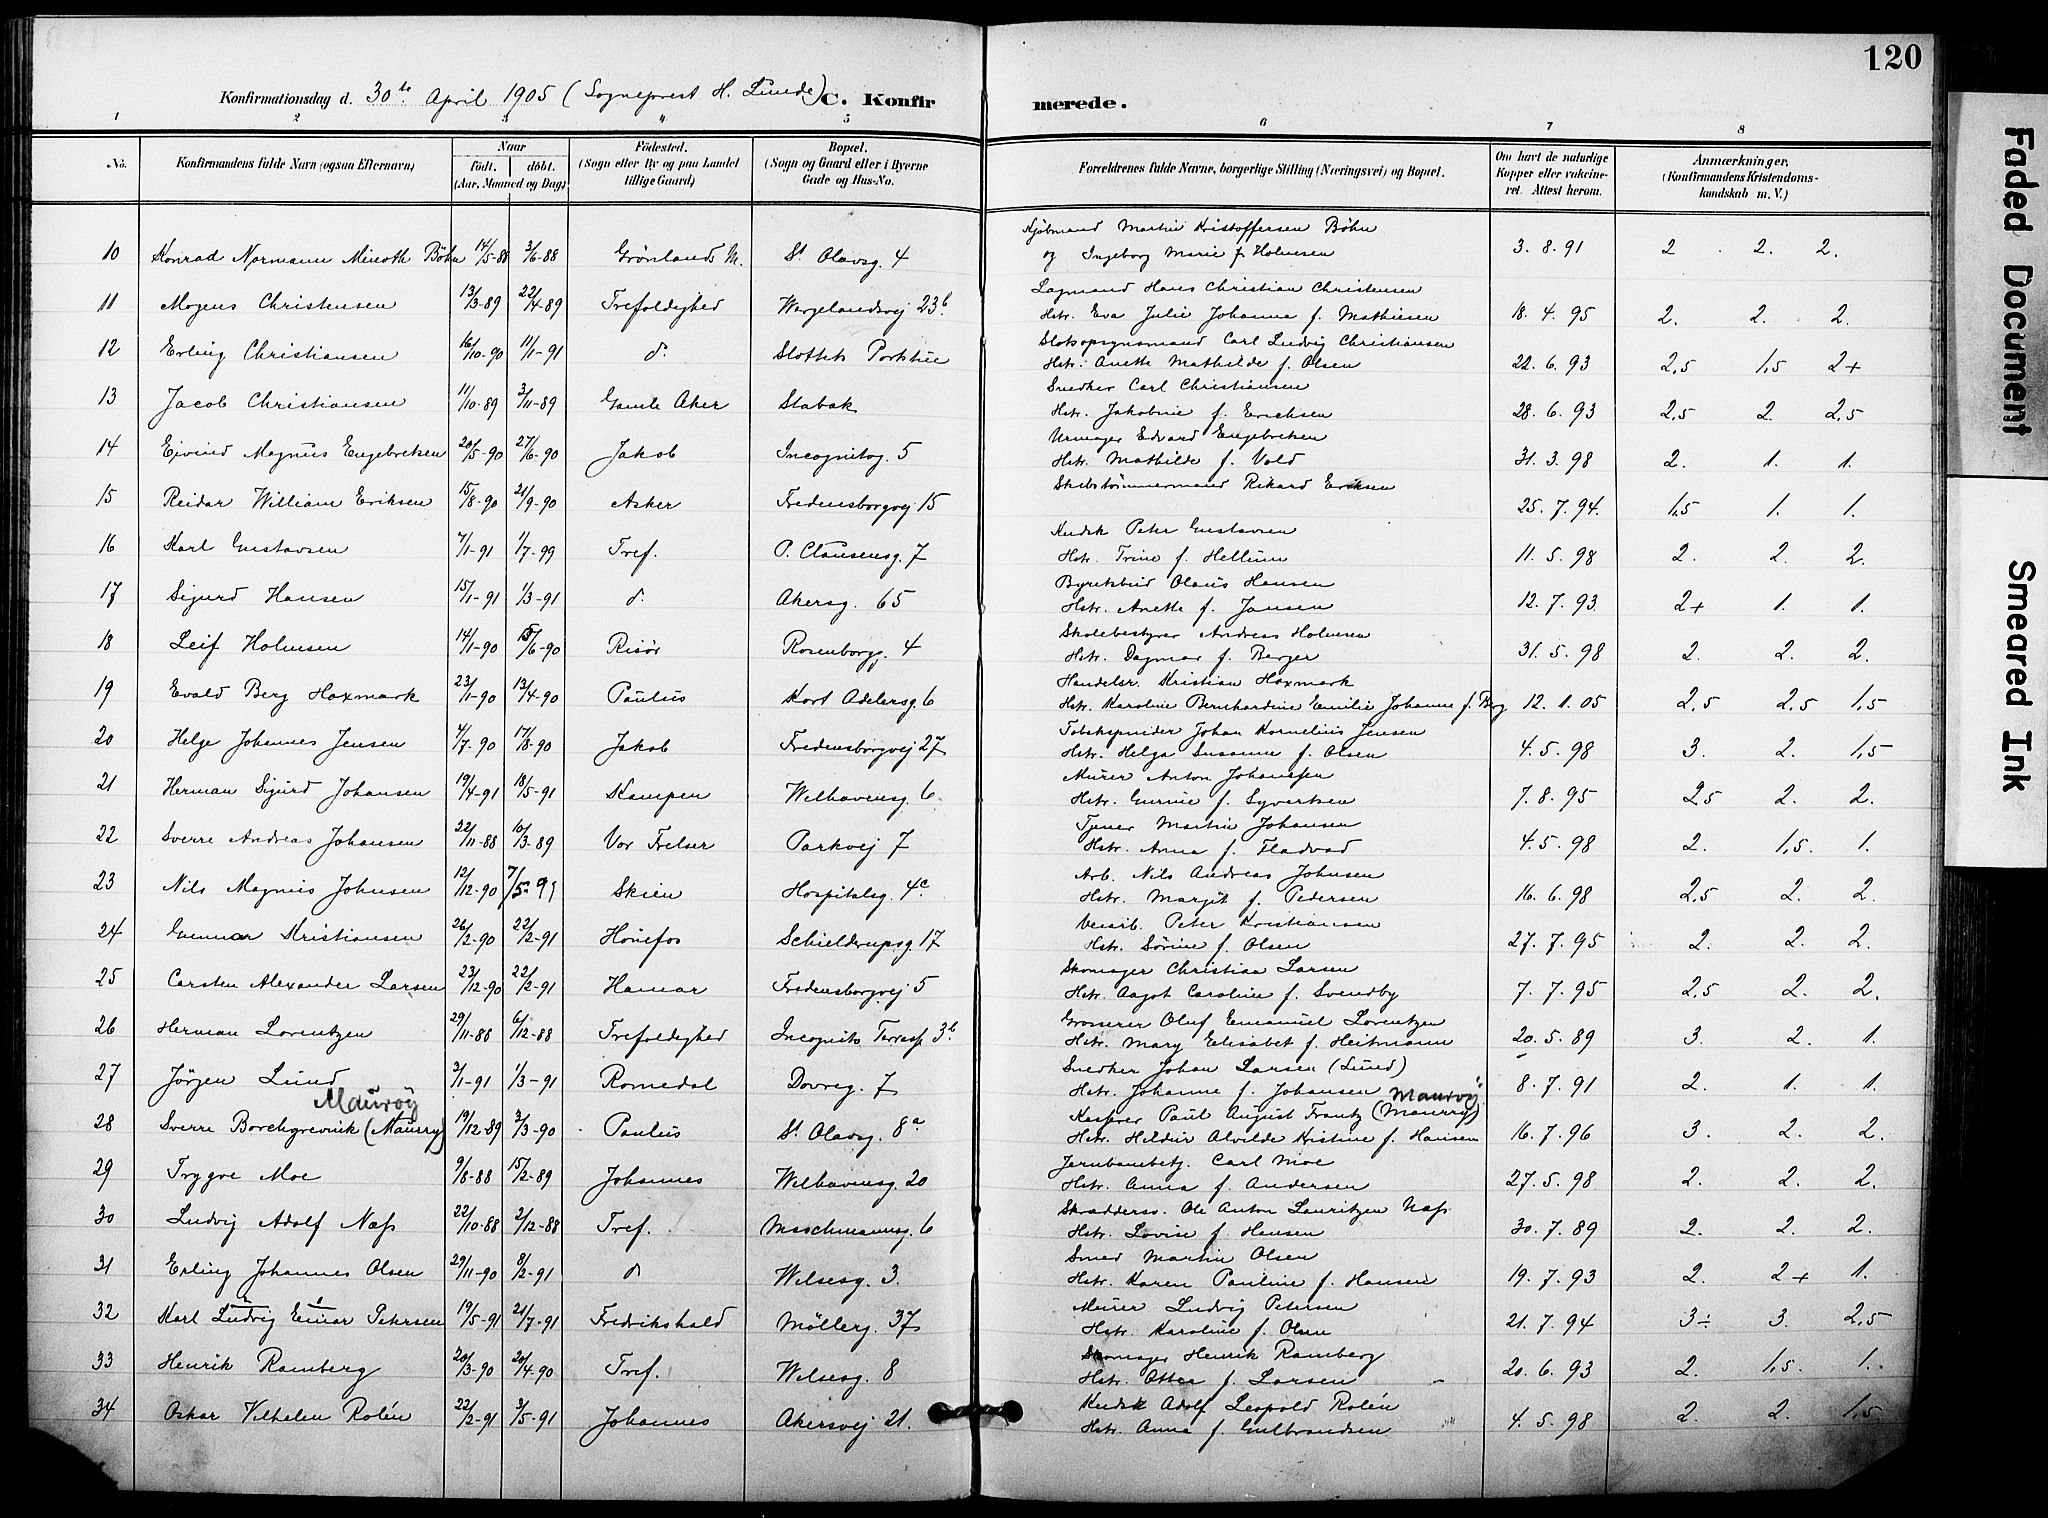 120
Konfirmationsdag d. 30te April 1905 (Sogneprest H. Lunde) C. Konfirmerede.
1 2 3 4 5 6 7 8
No. Konfirmandens fulde Navn (ogsaa Efternavn) Naar födt. döbt. (Aar, Maaned og Dag) Födested. (Sogn eller By og paa Landet tillige Gaard) Bopæl. (Sogn og Gaard eller i Byerne Gade og Hus-No. Forældrenes fulde Navne, borgerlige Stilling (Næringsvei) og Bopæl. Om havt de naturlige Kopper eller vakcineret. Attest herom. Anmærkninger. (Konfirmandens Kristendomskundskab m. V.)
Kjöbmand Martin Kristoffersen Böhn
10 Konrad Normann Minoth Böhn 14/5-88 3/6-88 Grönlands M. St Olavsg. 4 og Ingeborg Marie f. Holmsen 3.8.91 2 2. 2.
Lagmand Hans Christian Christensen
11 Mogens Christensen 13/3-89 22/4-89 Trefoldighed Wergelandsvej 23b Hstr. Eva Julie Johanna f. Mathiesen 18.4.95 2. 2. 2.
Slotsopsynsmand Carl Ludvig Christiansen
12 Erling Christiansen 16/10-90 11/1-91 d. Slottets Portstue Hstr. Anette Mathilde f. Olsen 22.6.93 2,5 1,5 2+
Snedker Carl Christiansen
13 Jacob Christiansen 11/10-89 3/11-89 Gamle Aker Stabak Hstr. Jakobine f. Erichsen 28.6.93 2,5 2. 2,5
Urmager Edvard Engebretsen
14 Eivind Magnus Engebretsen 20/5-90 27/6-90 Jakob Incognitog. 5 Hstr. Mathilde f. Vold 31.3.98 2. 1. 1.
Skibstömmermand Rikard Eriksen
15 Reidar William Eriksen 15/8-90 21/9-90 Asker Fredensborgvej 15 25.7.94. 1,5 1. 1.
Kudsk Peter Gustavsen
16 Karl Gustavsen 7/1-91 1/7-99 Tref. P. Clausensg. 7 Hstr. Trine f. Hellum 11.5.98 2. 2. 2.
Byretsbud Olaus Hansen
17 Sigurd Hansen 15/1-91 1/3-91 d. Akersg. 65 Hstr. Anette f. Jansen 12.7.93 2+ 1. 1.
Skolebestyrer Andreas Holmsen
18 Leif Holmsen 14/1-90 15/6-90 Risör Rosenborgg. 4 Hstr. Dagmar f. Berger 31.5.98 2. 2. 2.
Handelsr. Kristian Haxmark
19 Evald Berg Haxmark 23/1-90 13/4-90 Paulus Kort Adelersg. 6 Hstr. Karoline Bernhardine Emilie Johanne f. Berg 12.1.05 2,5 2,5 1,5
Tobakspinder Johan Kornelius Jensen
20 Helge Johannes Jensen 4/7-90 17/8-90 Jakob Fredensborgvej 27 Hstr. Helga Susanne f. Olsen 4.5.98 3. 2. 1,5
Murer Anton Johansen
21 Herman Sigurd Johansen 19/4-91 18/5-91 Kampen Welhavensg. 6 Hstr. Gurine f. Syvertsen 7.8.95 2,5 2. 2.
Tjener Martin Johansen
22 Sverre Andreas Johansen 22/11-88 10/3-89 Vor Frelser Parkvej 7 Hstr. Anna f. Fladvad 4.5.98 2. 1,5. 1.
Arb. Nils Andreas Johnsen
23 Nils Magnus Johnsen 12/12-90 7/5-91 Skien Hospitalsg. 4c Hstr. Margit f. Pedersen 16.6.98 2,5 2. 2.
Veiarb. Peter Kristiansen
24 Gunnar Kristiansen 26/2-90 22/2-91 Hönefos Schielderupsg. 17 Hstr. Sörine f. Olsen 27.7.95 2. 2. 2.
Skomager Christian Larsen
25 Carsten Alexander Larsen 23/12-90 22/2-91 Hamar Fredensborgvej 5 Hstr. Aagot Caroline f. Svendby 7.7.95 2,5 2. 2.
Grosserer Oluf Emanuel Lorentzen
26 Herman Lorentzen 29/11-88 6/12-88 Trefoldighed Incognito Terrasse 3b. Hstr. Mary Elisabet f. Heitmann 20.5.89 3. 2. 1.
Snedker Johan Larsen (Lund)
27 Jörgen Lund 3/1-91 1/3-91 Romedal Dovreg. 7 Hstr. Johanne f. Johansen 8.7.91 2. 1. 1.
Mauröy Mauröy
Kasserer Paul August Frantz (Maurry)
28 Sverre Borchgrevink (Maurry) 19/12-89 3/3-90 Paulus St. Olavsg. 8a Hstr. Hildur Alvilde Kristine f. Hansen 16.7.96 3. 2. 2.
Jernbanebetj. Carl Moe
29 Trygve Moe 9/8-88 15/2-89 Johannes Welhavensg. 20 Hstr. Anna f. Andersen 27.5.98 2. 2. 2.
Skrædders. Ole Anton Lauritzen Næss
30 Ludvig Adolf Næss 22/10-88 2/12-88 Tref. Maschmannsg. 6 Hstr. Lovise f. Hansen 30.7.89 2. 2. 2.
Smed Martin Olsen
31 Erling Johannes Olsen 29/11-90 8/2-91 d Wilsesg. 3. Hstr. Karen Pauline f. Hansen 19.7.93 2. 2+ 1.
Murer Ludvig Petersen
32 Karl Ludvig Einar Petersen 19/5-91 21/7-91 Fredrikshald Möllerg. 37 Hstr. Karoline f. Olsen 21.7.94 3÷ 3. 2,5
Skomager Henrik Ramberg
33 Henrik Ramberg 20/3-90 20/4-90 Tref. Wilsesg. 8 Hstr. Ottea f. Larsen 20.6.93 2. 1,5. 1.
Kudsk Adolf Leopold Rolén
34 Oskar Vilhelm Rolén 22/2-91 3/5-91 Johannes Akersvej 21. Hstr. Anna f. Gulbrandsen 4.5.98 2. 2. 1,5
Faded Document
Smeared Ink